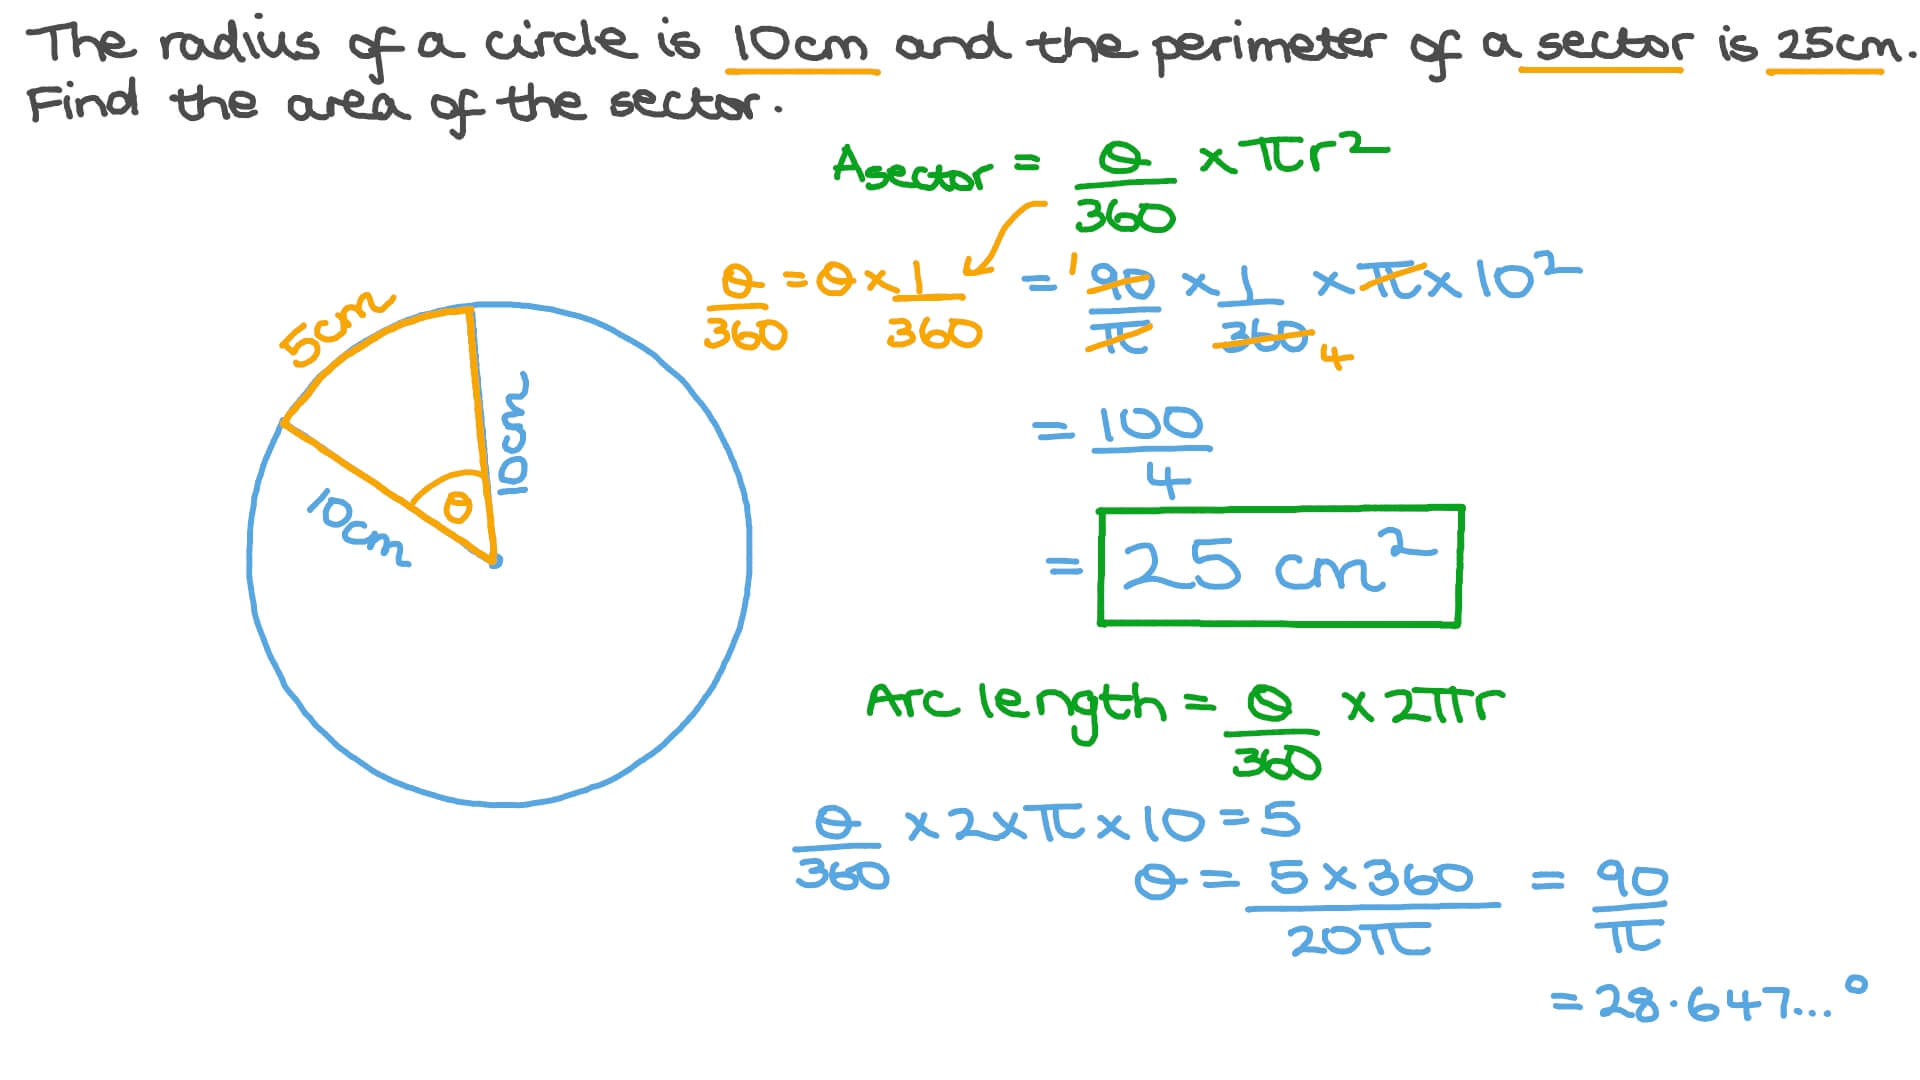 The radius of a circle is 10cm and the perimeter of a sector is 25cm.
Find the area of the sector.
A sector = θ/360 × πr²
θ/360 = θ × 1/360
= 90/π × 1/360 × π × 10²
1
4
= 100/4
= 25 cm²
5cm
10cm
10cm
θ
Arc length = θ/360 × 2πr
θ/360 × 2 × π × 10 = 5
θ = 5 × 360/20π = 90/π
= 28.647...°